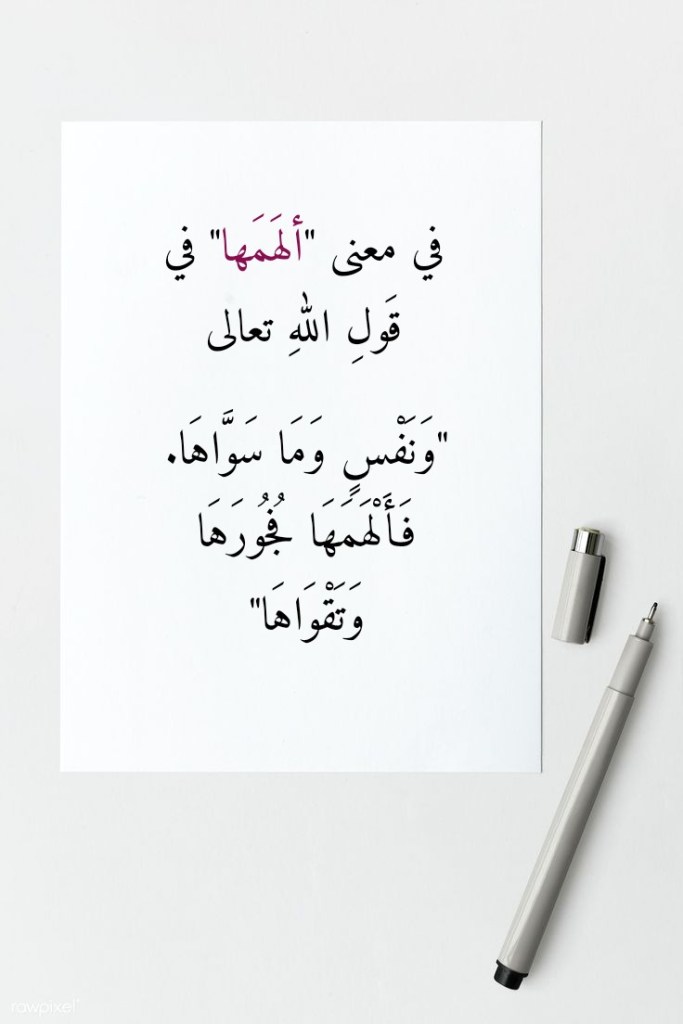 في معنى "ألهَمَها" في
قَولِ اللهِ تعالى
"وَنَفْسٍ وَمَا سَوَّاهَا.
فَأَلْهَمَهَا فُجُورَهَا
وَتَقْوَاهَا"
rawpixel